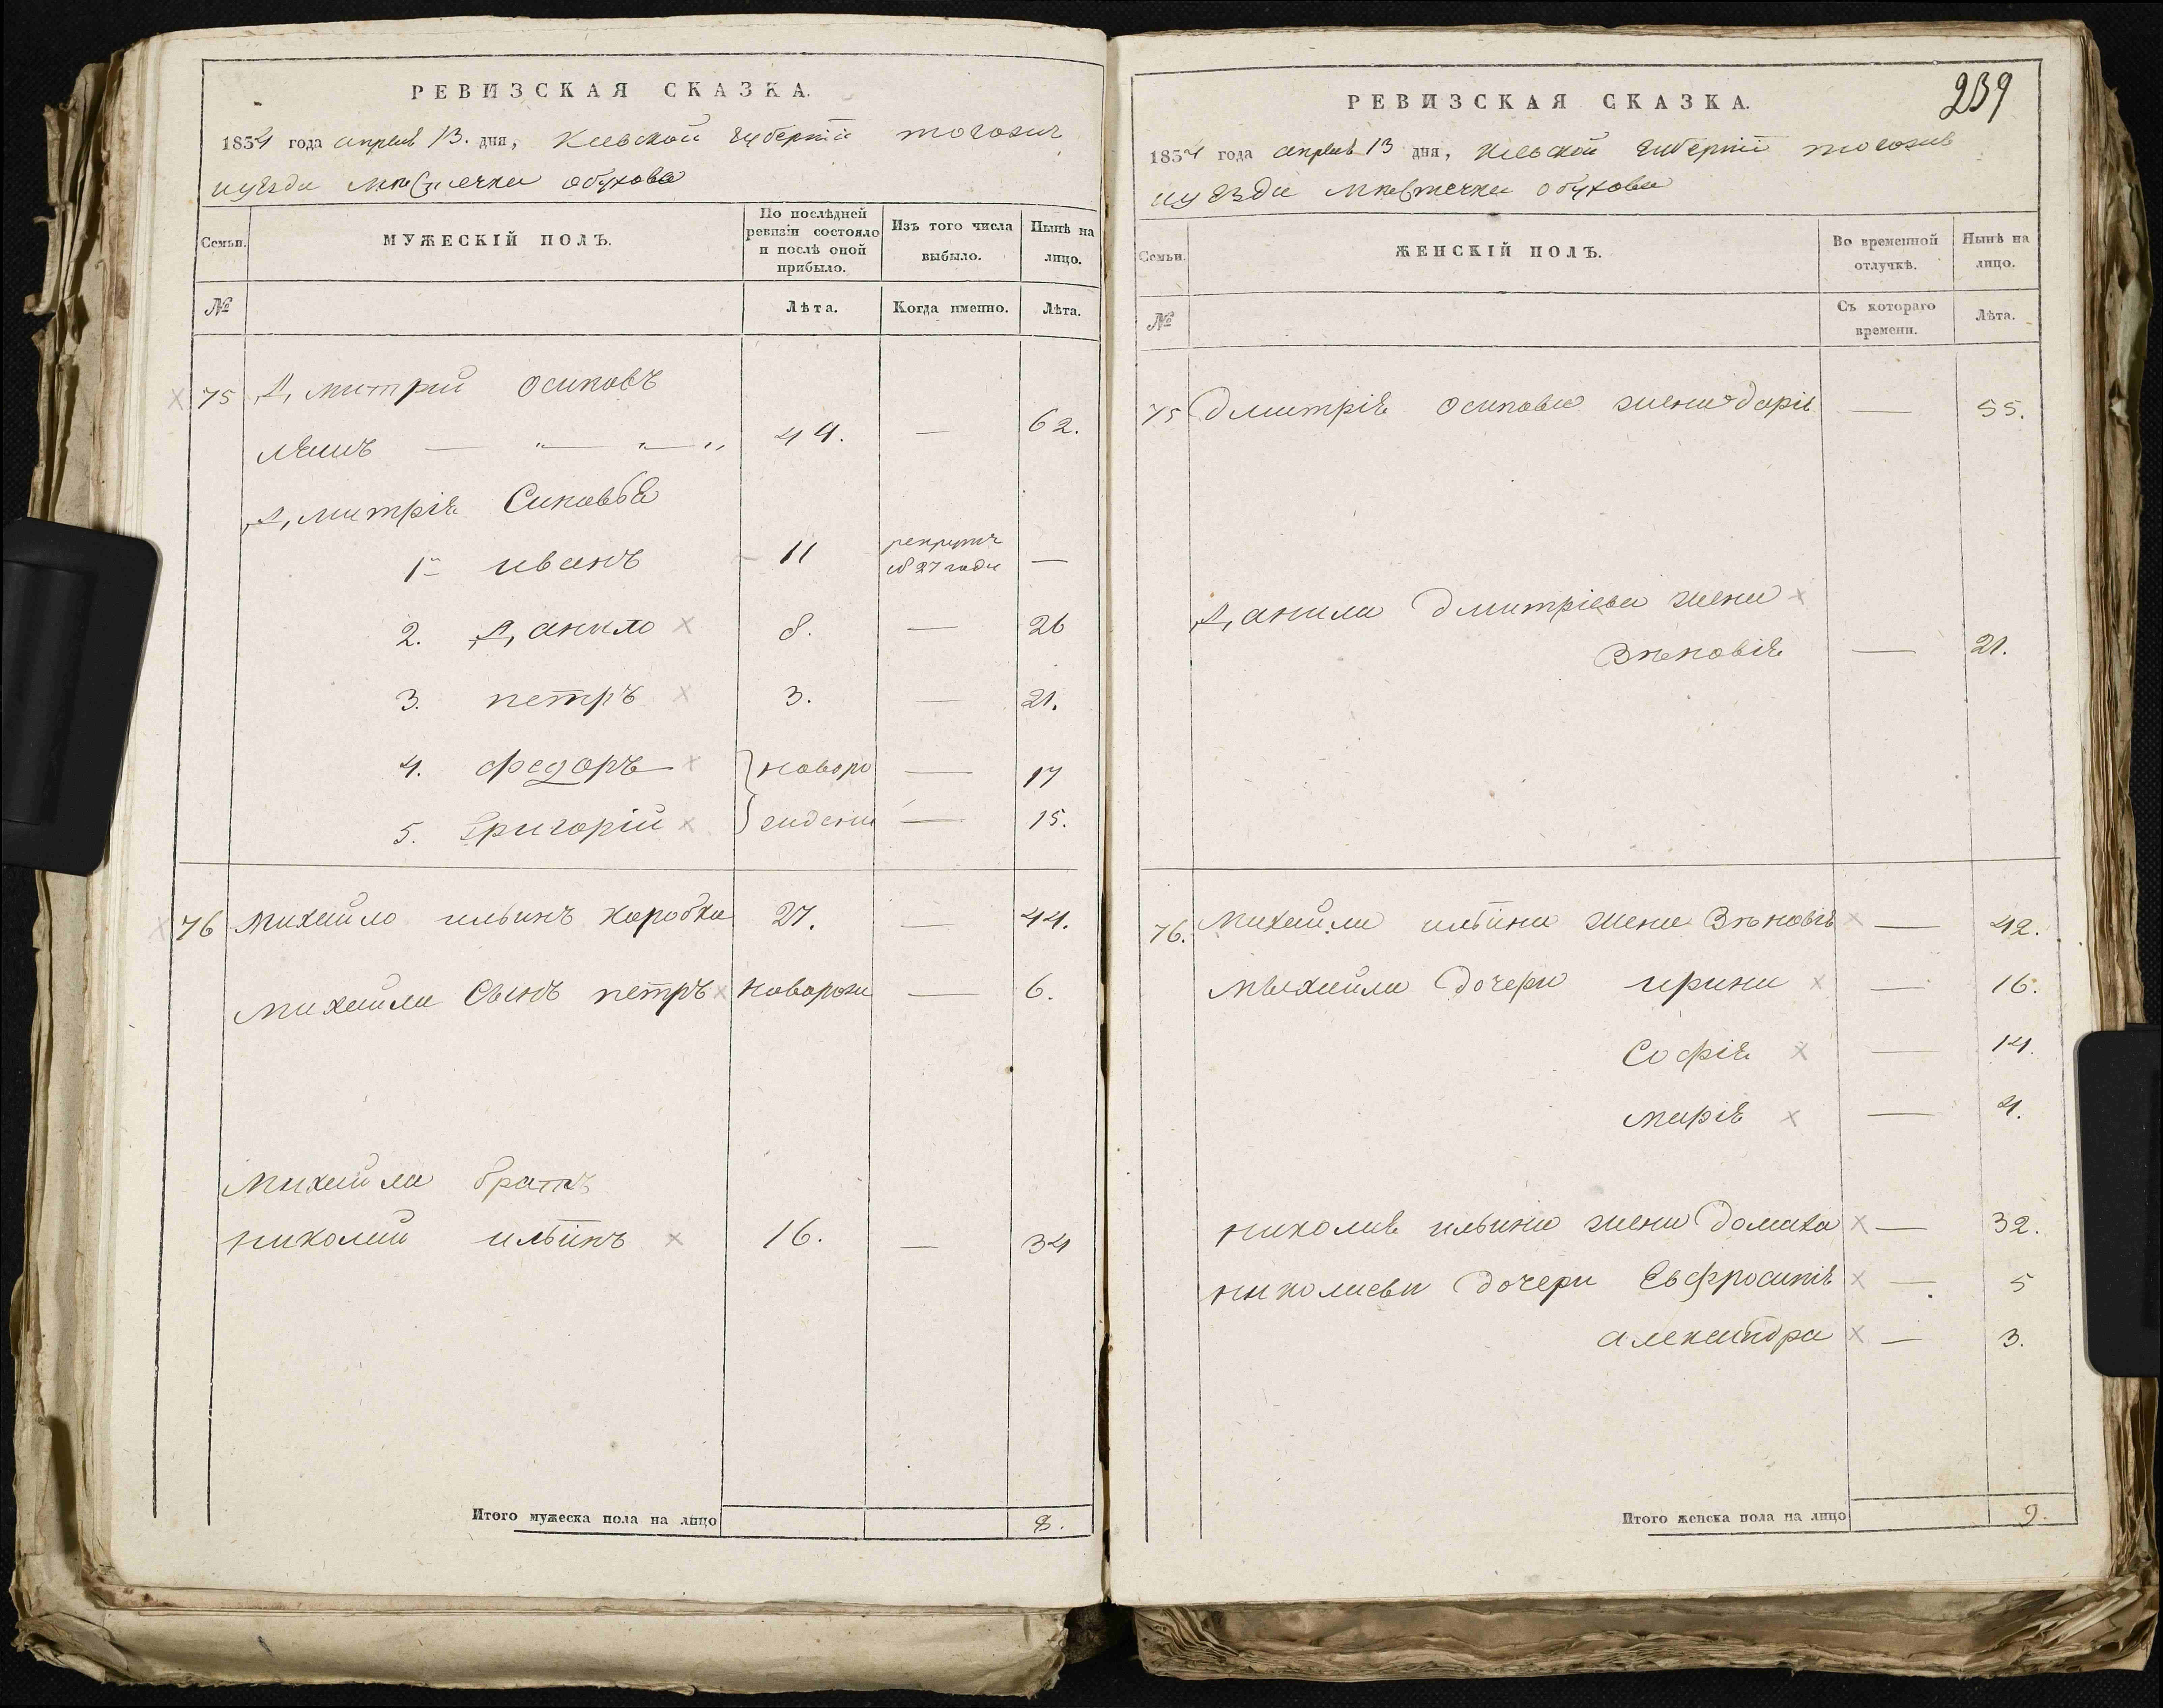 РЕВИЗСКАЯ СКАЗКА.
1834 года апреля 13. дня, Киевской губерніи тогожъ
уѣзда мѣстечка обухова
Семьи.
МУЖЕСКІЙ ПОЛЪ.
По послѣдней ревизіи состояло и послѣ оной прибыло.
Изъ того числа выбыло.
Нынѣ на лицо.
№
Лѣта.
Когда именно.
Лѣта.
75 Дмитрій осиповъ
44. — 62.
Дмитрія Сыновья
1й иванъ 11 рекрутъ 1827 года —
2. Данило 8. — 26
3. петръ 3. — 21.
4. федоръ новоро — 17
5. Григорій жденн — 15.
76 Михайло ильинъ коробка 27. — 44.
михайла Сынъ петръ новорож — 6.
Михайла братъ
николай ильинъ 16. — 34
Итого мужеска пола на лицо 8.
239
РЕВИЗСКАЯ СКАЗКА.
1834 года апреля 13 дня, Киевской губерніи тогожъ
уѣзда мѣстечка обухова
Семьи.
ЖЕНСКІЙ ПОЛЪ.
Во временной отлучкѣ.
Нынѣ на лицо.
№
Съ котораго времени.
Лѣта.
75 Дмитрія осипова жена дарія — 55.
Данила дмитріева жена
Зѣновія — 21.
76. Михайла ильина жена Зѣновія — 42.
михайла дочери ирина — 16.
Софія — 14.
марія — 4.
николая ильина жена домаха — 32.
николаевы дочери Евфросинія — 5
александра — 3.
Итого женска пола на лицо 9.